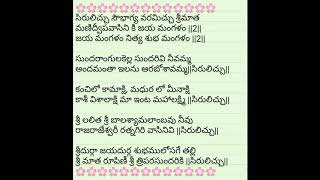 సిరులిచ్చు సౌభాగ్య వరమిచ్చు శ్రీమాత
మణిద్వీపవాసిని కీ జయ మంగళం ||2||
జయ మంగళం నిత్య శుభ మంగళం ||2||
సుందరాంగులకెల్ల సుందరివి నీవమ్మ
అందమంతా ఇలను ఆరబోశావమ్మ||సిరులిచ్చు||
కంచిలో కామాక్షి, మధుర లో మీనాక్షి
కాశీ విశాలాక్షి మా ఇంట మహాలక్ష్మి ||సిరులిచ్చు||
శ్రీ లలిత శ్రీ బాలశ్యామలాంబవు నీవు
రాజరాజేశ్వరీ రత్నగిరి వాసినివి ||సిరులిచ్చు||
శ్రీదుర్గా జయదుర్గ శుభములోసగే తల్లి
శ్రీ మాత రూపిణీ శ్రీ త్రిపురసుందరికి ||సిరులిచ్చు||